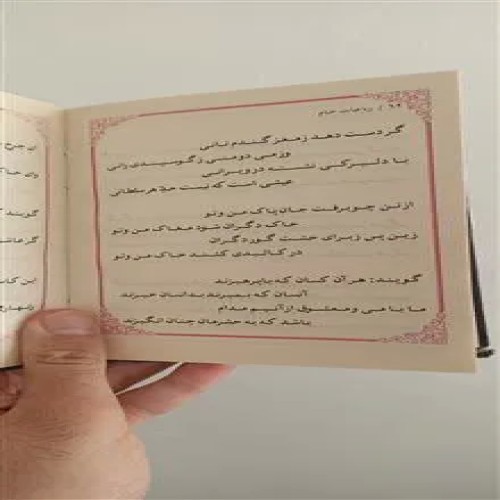 ۶۹ / رباعیات خیام
گر دست دهد ز مغز گندم نانی
وز می دو منی ز گوسپندی رانی
با دلبرکی نشسته در ویرانی
عیشی است که نیست حد هر سلطانی
از تن چو برفت جان پاک من و تو
خاک دگران شود مغاک من و تو
زین پس ز برای خشت گور دگران
در کالبدی کشند خاک من و تو
گویند: هر آن کسان که باپرهیزند
آنسان که بمیرند بدانسان خیزند
ما با می و معشوق از آنیم مدام
باشد که به حشرمان چنان انگیزند
گویند